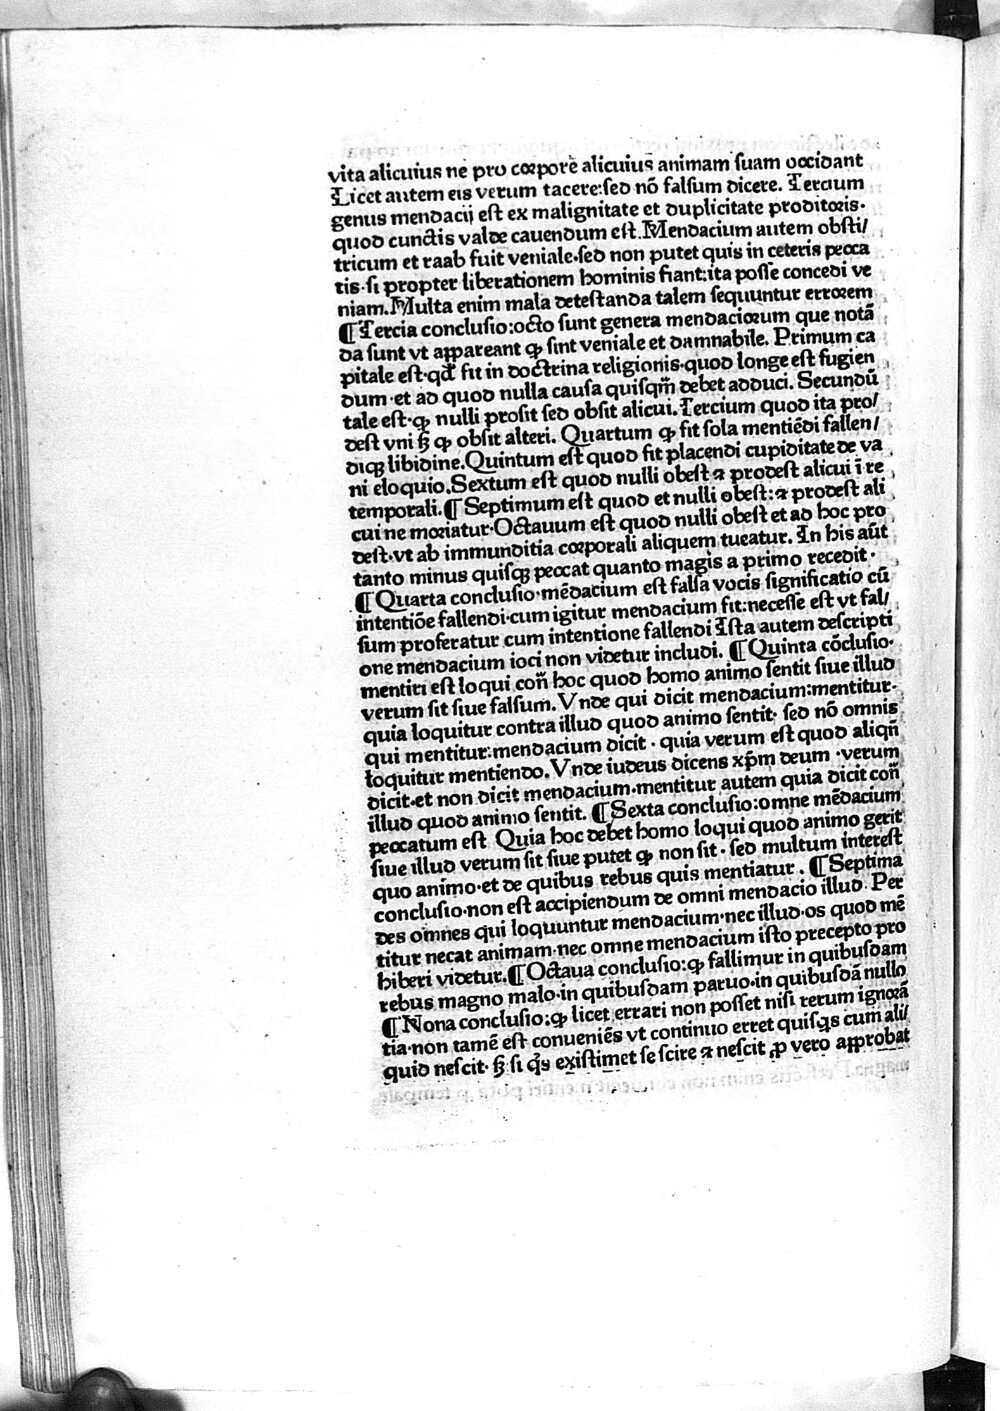 vita alicuius ne pro corpore alicuius animam suam occidant
Licet autem eis verum tacere:sed nō falsum dicere. Tercium
genus mendacij est ex malignitate et duplicitate proditoris·
quod cunctis valde cauendum est.Mendacium autem obsti/
tricum et raab fuit veniale·sed non putet quis in ceteris pecca
tis·si propter liberationem hominis fiant:ita posse concedi ve
niam.Multa enim mala detestanda talem sequuntur errorem
¶Tercia conclusio:octo sunt genera mendaciorum que notā
da sunt vt appareant ꝙ sint veniale et damnabile. Primum ca
pitale est·qd̄ fit in doctrina religionis·quod longe est fugien
dum·et ad quod nulla causa quisqm̄ debet adduci. Secundū
tale est·ꝙ nulli prosit sed obsit alicui. Tercium quod ita pro/
dest vni ꝫ ꝙ obsit alteri. Quartum ꝙ fit sola mentiēdi fallen/
diqꝫ libidine.Quintum est quod fit placendi cupiditate de va
ni eloquio.Sextum est quod nulli obest ⁊ prodest alicui ī re
temporali.¶Septimum est quod et nulli obest:⁊ prodest ali
cui ne moriatur·Octauum est quod nulli obest et ad hoc pro
dest·vt ab immunditia corporali aliquem tueatur. In his aūt
tanto minus quisqꝫ peccat quanto magis a primo recedit·
¶Quarta conclusio·mēdacium est falsa vocis significatio cū
intentiōe fallendi·cum igitur mendacium fit:necesse est vt fal/
sum proferatur cum intentione fallendi Ista autem descripti
one mendacium ioci non videtur includi. ¶Quinta cōclusio·
mentiri est loqui con̄ hoc quod homo animo sentit siue illud
verum sit siue falsum.Vnde qui dicit mendacium:mentitur·
quia loquitur contra illud quod animo sentit· sed nō omnis
qui mentitur:mendacium dicit · quia verum est quod aliqn̄
loquitur mentiendo.Vnde iudeus dicens xp̄m deum ·verum
dicit·et non dicit mendacium·mentitur autem quia dicit con̄
illud quod animo sentit. ¶Sexta conclusio:omne mēdacium
peccatum est Quia hoc debet homo loqui quod animo gerit
siue illud verum sit siue putet ꝙ non sit· sed multum interest
quo animo·et de quibus rebus quis mentiatur . ¶Septima
conclusio·non est accipiendum de omni mendacio illud. Per
des omnes qui loquuntur mendacium·nec illud·os quod mē
titur necat animam·nec omne mendacium isto precepto pro
hiberi videtur.¶Octaua conclusio:ꝙ fallimur in quibusdam
rebus magno malo·in quibusdam paruo·in quibusdā nullo
¶Nona conclusio:ꝙ licet errari non posset nisi rerum ignorā
tia·non tamē est conueniēs vt continuo erret quisqs cum ali/
quid nescit· ꝫ si qs existimet se scire ⁊ nescit ꝓ vero approbat